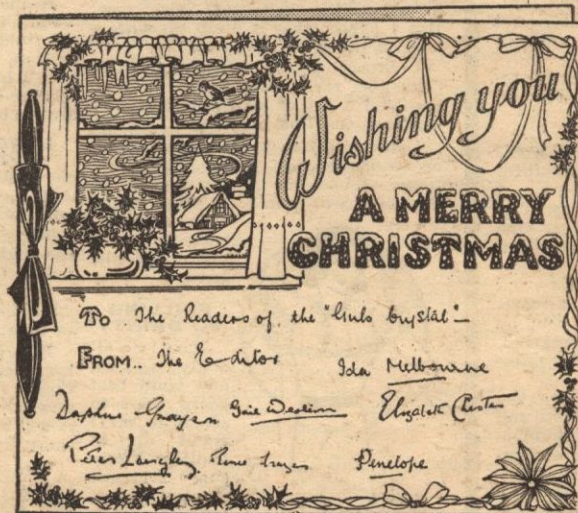 Wishing you
A MERRY
CHRISTMAS
To The Readers of the "Girls Crystal"—
FROM.. The Editor Ida Melbourne
Daphne Grayson Gail Western Elizabeth Chester
Peter Langley. Renee Frazer Penelope